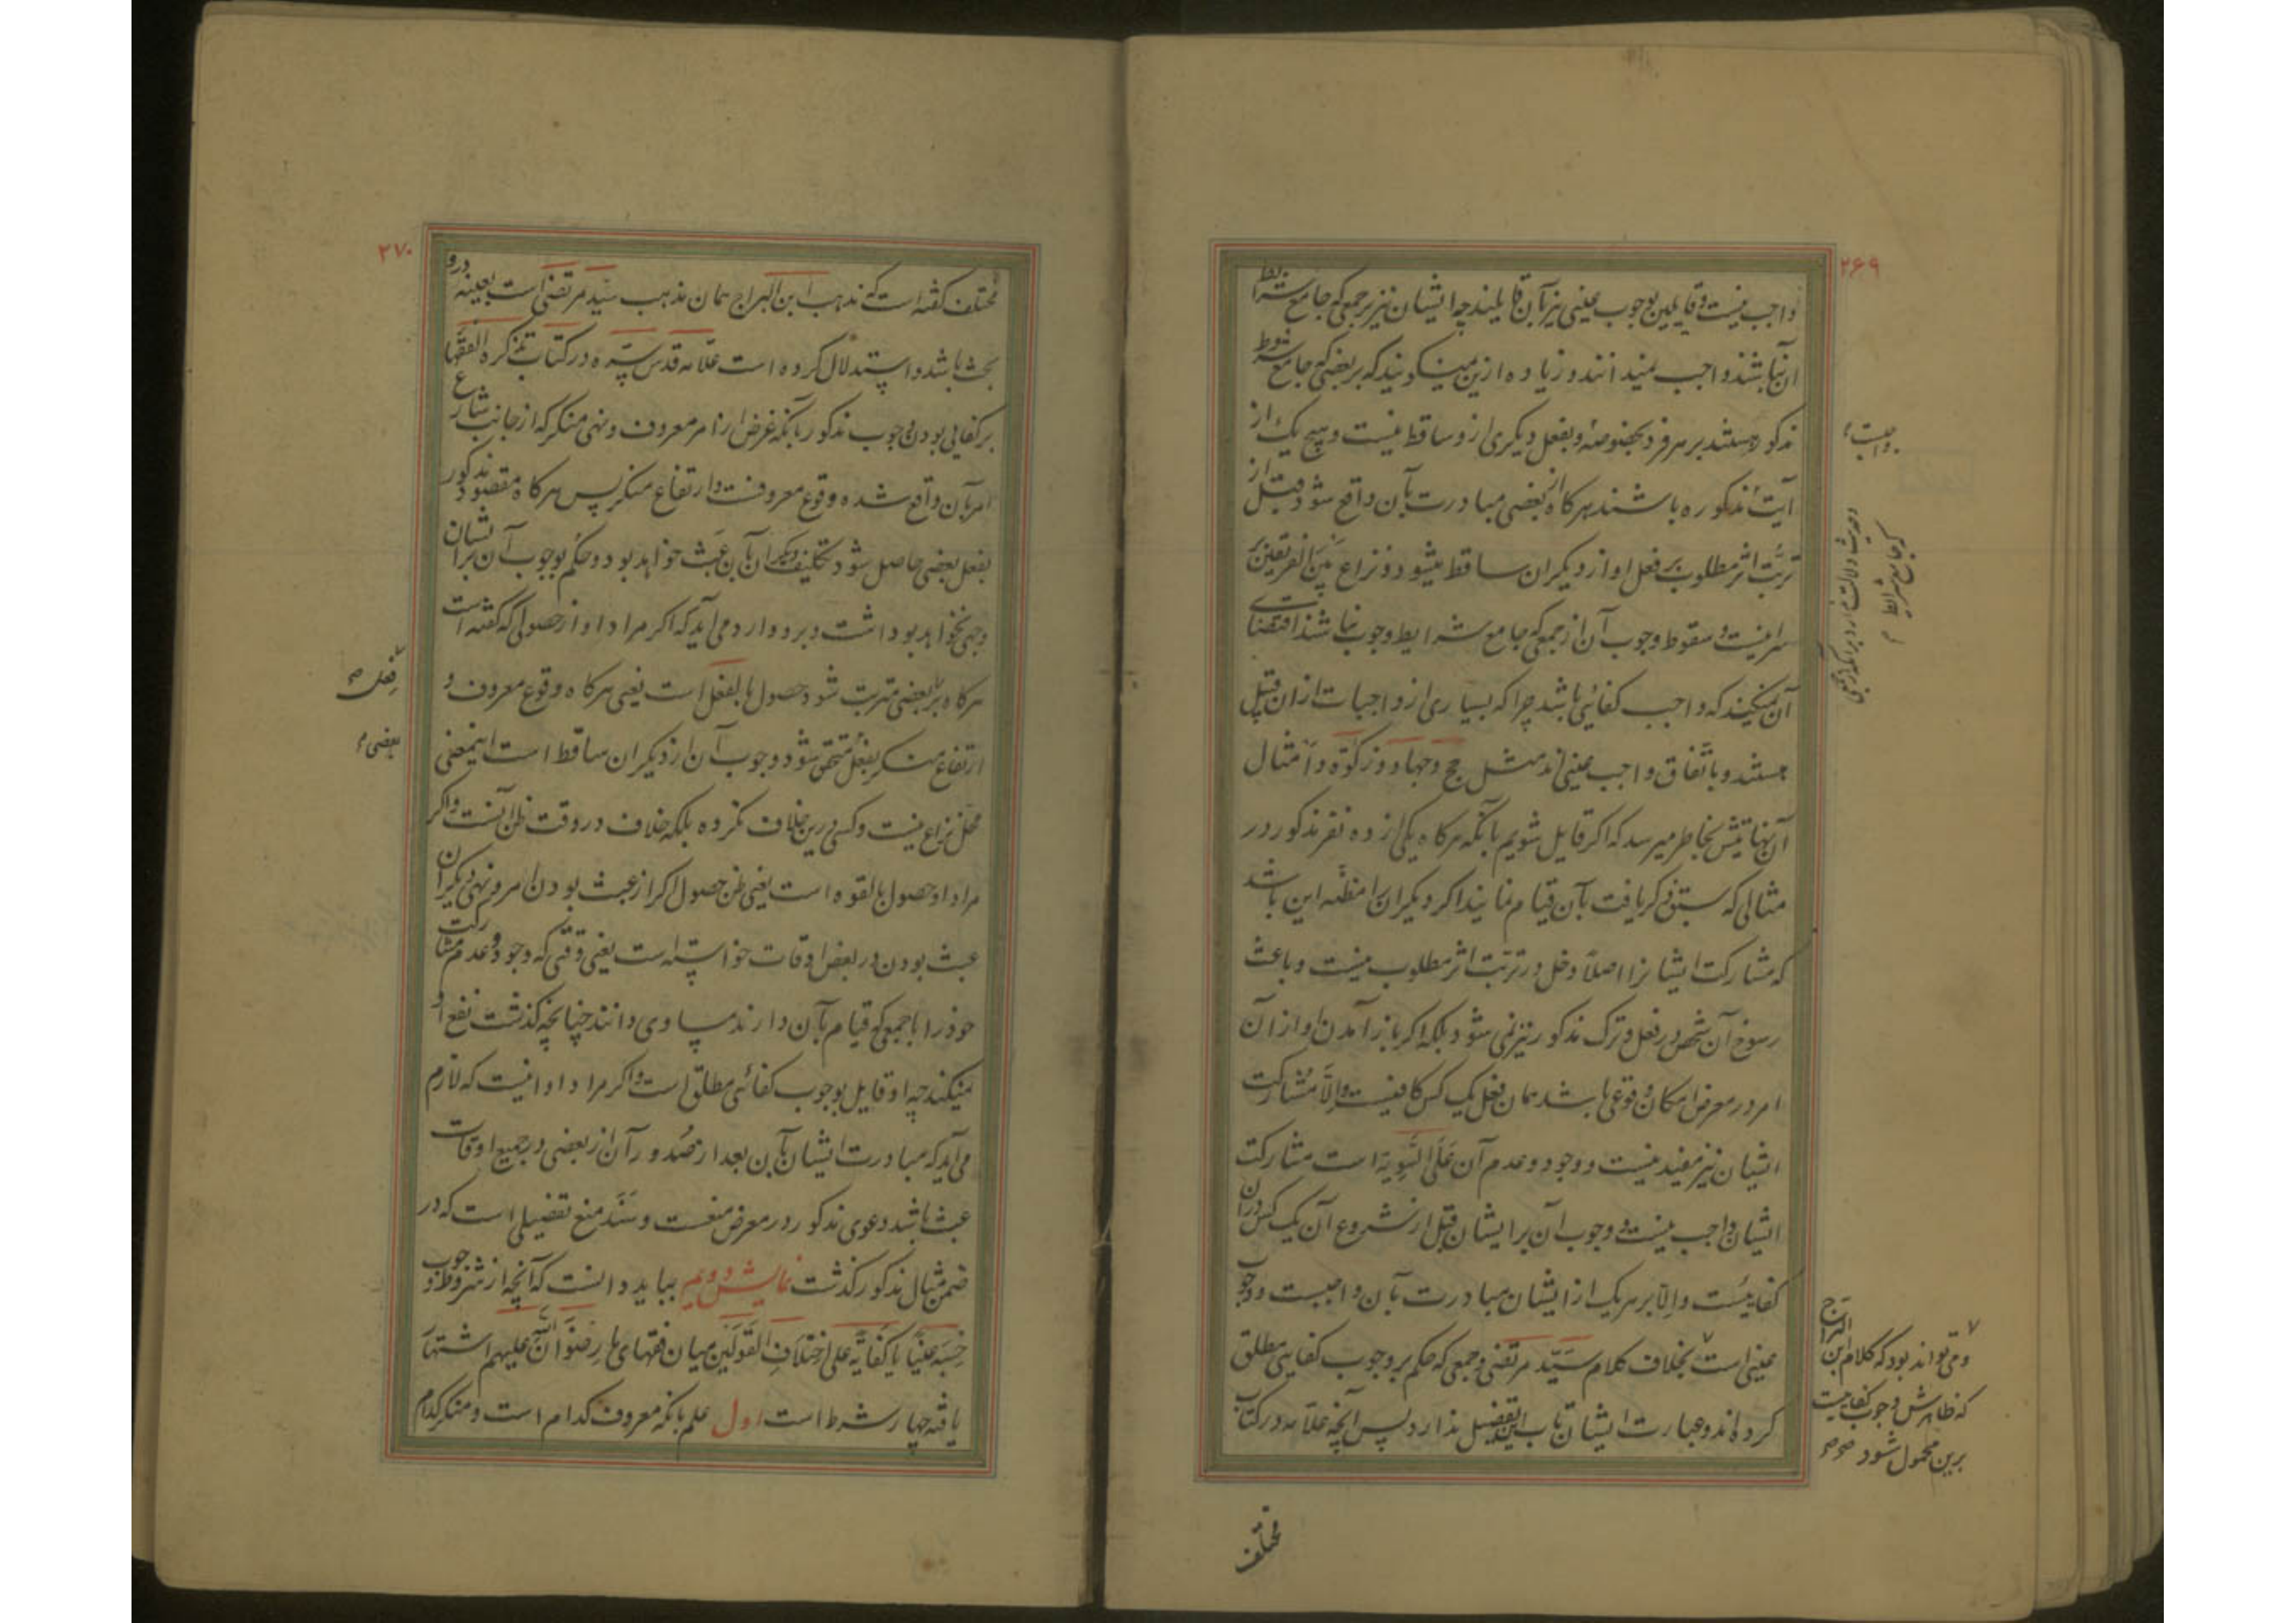 ۲۶۹
واجب نیست و قایلین بوجوب عینی نیز بآن قایلند چه ایشان نیز بر جمعی که جامع شرایط
آن نباشند واجب نمیدانند و زیاده ازین نمیگویند که بر بعضی که جامع شروط
مذکوره هستند بر هر فرد بخصوصه و بفعل دیگری ازو ساقط نیست و هیچ یک از
آیت مذکوره باشند هرکاه از بعضی مبادرت بآن واقع شود قبل از
ترتب اثر مطلوب بر فعل او از دیکران ساقط میشود و نزاع بین الفریقین بر
سر اینست و سقوط وجوب آن از جمعی که جامع شرایط وجوب نباشند اقتضای
آن نمیکند که واجب کفائی باشد چرا که بسیاری از واجبات ازان قبیل
هستند و باتفاق واجب عینی اند مثل حج و جهاد و زکوة و امثال
آنها بخاطر میرسد که اکر قایل شویم بآنکه هرکاه یکی از ده نفر مذکور در
مثالی که سبق ذکر یافت بآن قیام نمایند اکر دیکران را مظنه این باشد
که مشارکت ایشانرا اصلاً دخل در ترتب اثر مطلوب نیست و باعث
رسوخ آن شخص در فعل و ترک مذکور نیز نمی شود بلکه اکر باز آمدن او ازان
امر در معرض امکان وقوعی باشد همان فعل یک کس کافیست و الّا مشارکت
ایشان نیز مفید نیست و وجود و عدم آن علی السّویة است مشارکت
ایشان واجب نیست و وجوب آن بر ایشان قبل از شروع آن یک کس دران
کفائیست و الّا بر هر یک از ایشان مبادرت بآن واجبست و وجوب
عینی است بخلاف کلام سیّد مرتضی و جمعی که حکم بر وجوب کفایی مطلق
کرده اند و عبارت ایشان تاب این تفصیل ندارد پس آنچه علامه در کتاب
مختلف
واجبست
و حدیث دلالت ندارد بر آنکه از بعضی
که جامع شرایط
و می تواند بود که کلام ابن البراج
که ظاهرش وجوب کفائیست
برین محمول شود
۲۷۰
مختلف کفته است که مذهب ابن البراج همان مذهب سیّد مرتضی است بعینه درو
بحث باشد و استدلال کرده است علّامه قدس سرّه در کتاب تذکره الفقها
بر کفایی بودن وجوب مذکور بآنکه غرض از امر معروف و نهی منکر که از جانب شارع
امر بآن واقع شده وقوع معروفست و ارتفاع منکر پس هرکاه مقصود مذکور
بفعل بعضی حاصل شود تکلیف دیکران بآن عبث خواهد بود و حکم بوجوب آن بر ایشان
وجهی نخواهد بود داشت و برو وارد می آید که اکر مراد او از حصولی که کفته است
هرکاه بر بعضی مترتب شود حصول بالفعل است یعنی هرکاه وقوع معروف و
ارتفاع منکر بفعل متحقق شود وجوب آن از دیکران ساقط است اینمعنی
محل نزاع نیست و کسی درین خلاف نکرده بلکه خلاف در وقت ظن آنست و اکر
مراد او حصول بالقوه است یعنی ظن حصول اکر از عبث بودن امر و نهی دیکران
عبث بودن در بعض اوقات خواسته است یعنی وقتی که وجود و عدم مشارکت
خود را با جمعی که قیام بآن دارند مساوی دانند چنانچه کذشت نفع او
نمیکند چه او قایل بوجوب کفائی مطلق است و اکر مراد او اینست که لازم
می آید که مبادرت ایشان بآن بعد از صدور آن از بعضی در جمیع اوقات
عبث باشد دعوی مذکور در معرض منعست و سند منع تفصیلی است که در
ضمن مثال مذکور کذشت نمایش دویم بباید دانست که آنچه از شروط وجوب
حسبه عینیا یا کفائیه علی اختلاف القولین میان فقهای ما رضوان الله علیهم اشتهار
یافته چهار شرط است اول علم بآنکه معروف کدام است و منکر کدام
فعل
بعضی